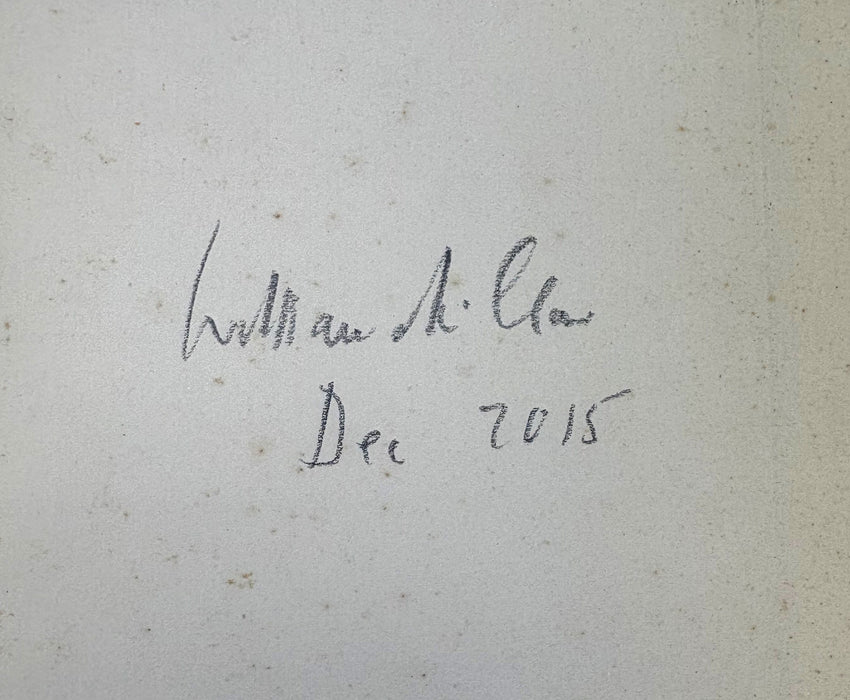 William Miller
Dec 2015